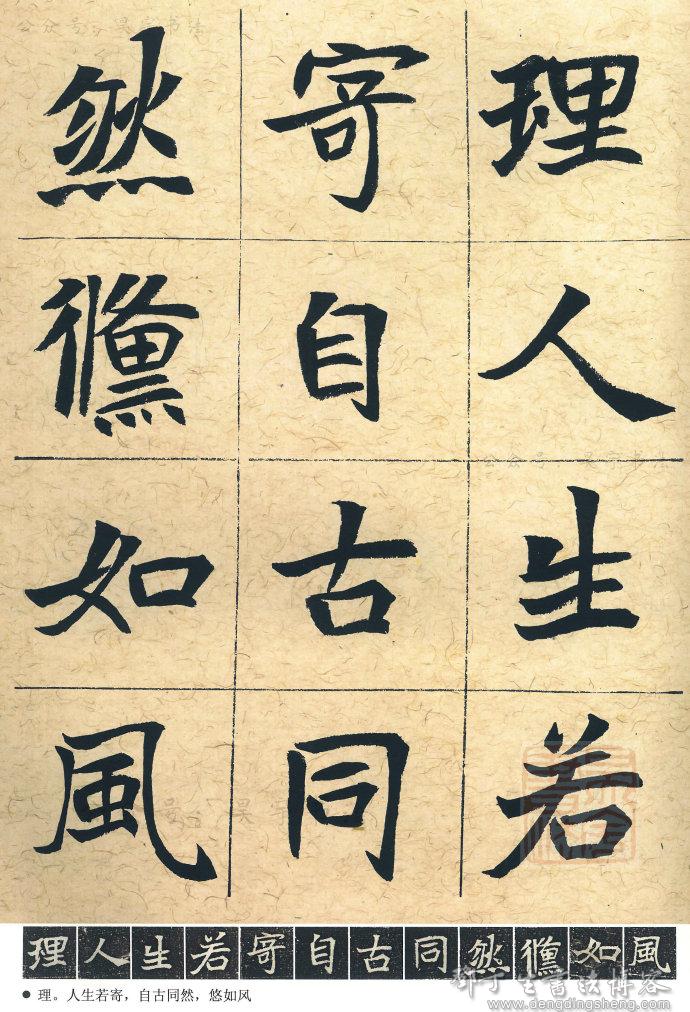 理人生若
寄自古同
然儵如風
理人生若寄自古同然儵如風
● 理。人生若寄，自古同然，悠如风
邓丁生書法博客
www.dengdingsheng.com